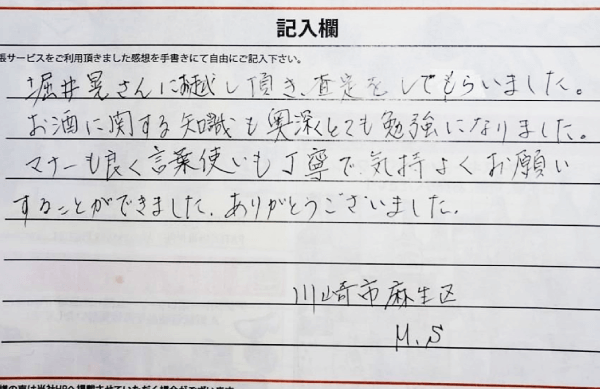 記入欄
張サービスをご利用頂きました感想を手書きにて自由にご記入下さい。
堀井晃さんにお越し頂き、査定をしてもらいました。
お酒に関する知識も奥深くとても勉強になりました。
マナーも良く言葉使いも丁寧で気持よくお願い
することができました。ありがとうございました。
川崎市麻生区
M.S
様の声は当社HPへ掲載させていただく場合がございます。